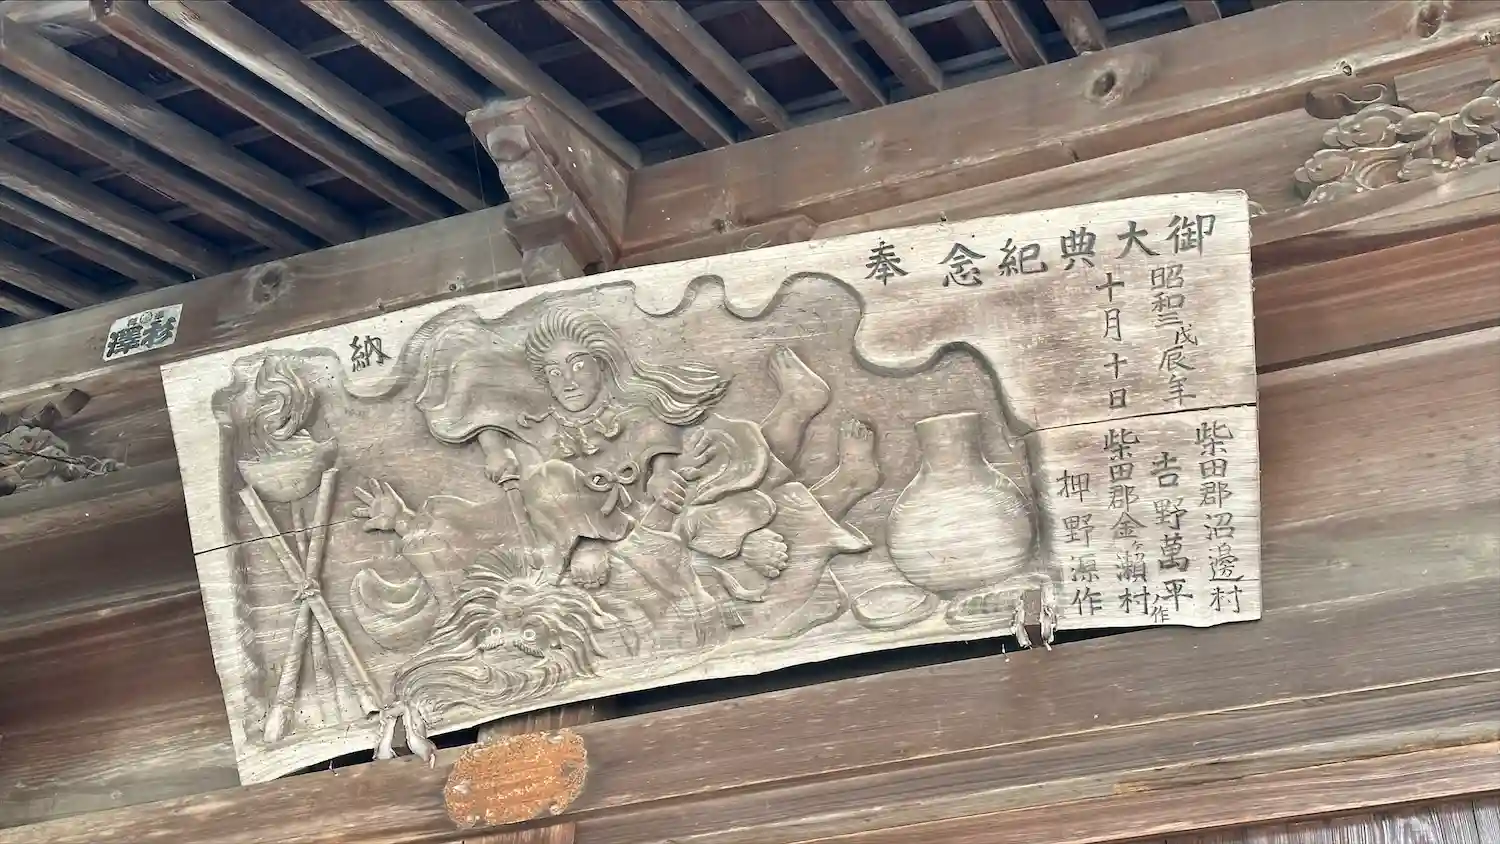 御大典紀念
奉
納
昭和三戊辰年
十月十日
柴田郡沼邊村
吉野萬平作
柴田郡金ヶ瀬村
押野源作
杉澤